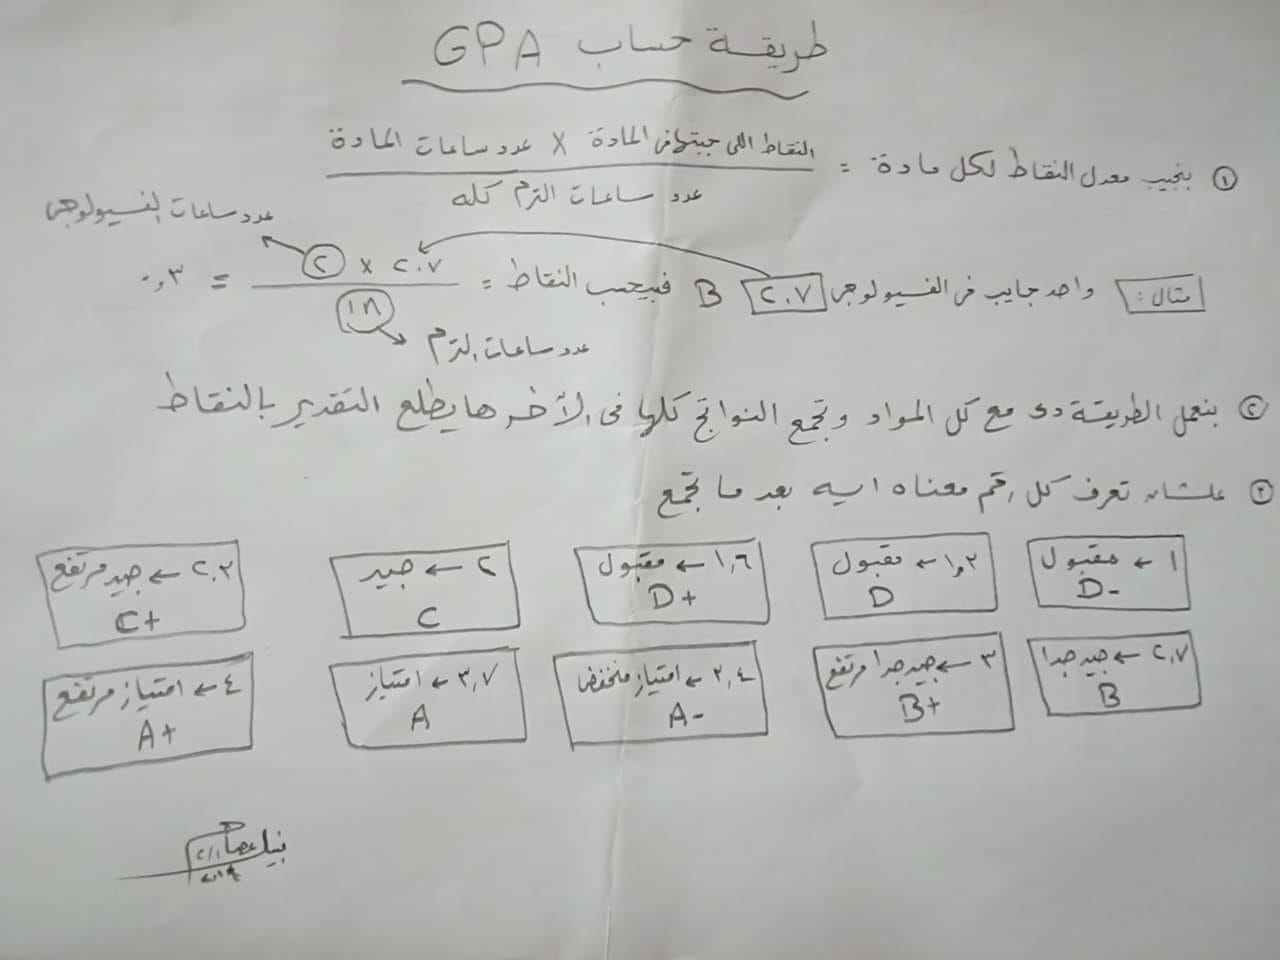 طريقة حساب GPA
① بنجيب معدل النقاط لكل مادة = النقاط اللى جبتها فى المادة × عدد ساعات المادة
عدد ساعات الترم كله
عدد ساعات الفسيولوجى
مثال: واحد جايب فى الفسيولوجى ٢.٧ B فبيحسب النقاط = ٢.٧ × ٢ = ٠,٣
١٨
عدد ساعات الترم
② بنعمل الطريقة دى مع كل المواد وتجمع النواتج كلها فى الأخر هايطلع التقدير بالنقاط
③ علشان تعرف كل رقم معناه ايه بعد ما تجمع
١ ← مقبول
D-
١,٣ ← مقبول
D
١,٦ ← مقبول
D+
٢ ← جيد
C
٢,٣ ← جيد مرتفع
C+
٢,٧ ← جيد جدا
B
٣ ← جيد جدا مرتفع
B+
٣,٤ ← امتياز منخفض
A-
٣,٧ ← امتياز
A
٤ ← امتياز مرتفع
A+
نبيل عصام